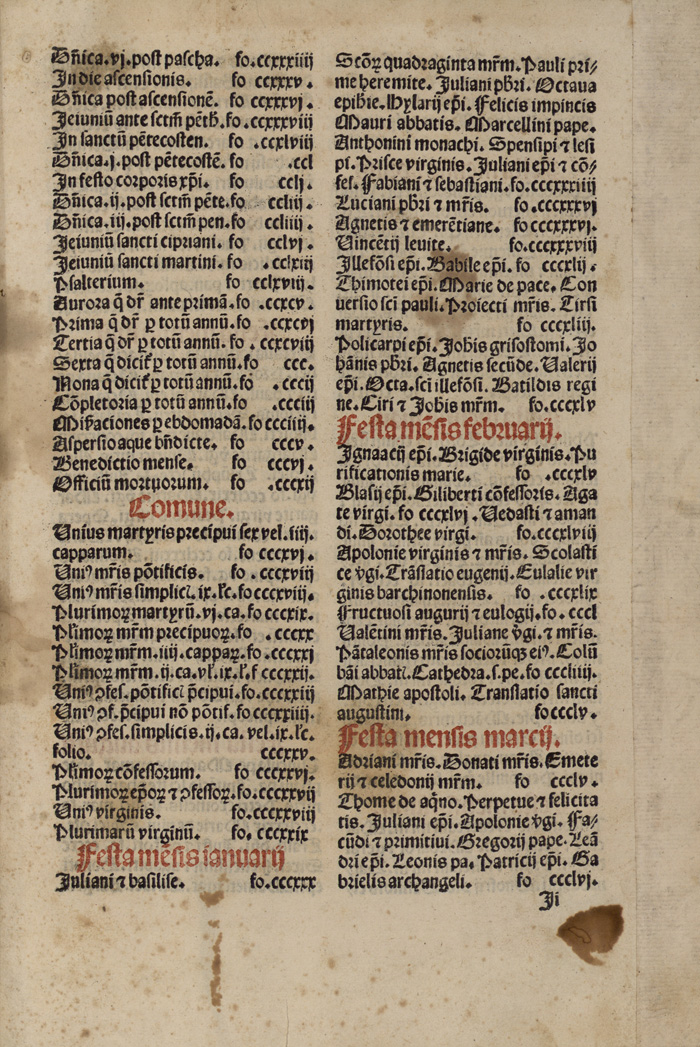 Dñica.vj.post pascha. fo.ccxxxiiij
In die ascensionis. fo ccxxxv.
Dñica post ascensionē. fo ccxxxvj.
Jeiuniū ante sctm̄ pētħ.fo.ccxxxviij
In sanctū pētecosten. fo .ccxlviij
Dñica.j.post pētecostē. fo .ccl
In festo corporis xp̄i. fo cclj.
Dñica.ij.post sctm̄ pēte.fo ccliij.
Dñica.iij.post sctm̄ pen.fo ccliiij.
Jeiuniū sancti cipriani. fo cclvj.
Jeiuniū sancti martini. fo .cclxiij
Psalterium. fo cclxviij.
Aurora q̄ dr̄ ante primā.fo .ccxcv.
Prima q̄ dr̄ ꝑ totū annū.fo .ccxcvj
Tertia q̄ dr̄ ꝑ totū annū. fo .ccxcviij
Sexta q̄ dicit̄ ꝑ totū annū.fo ccc.
Nona q̄ dicit̄ ꝑ totū annū.fo .cccij
Cōpletoria ꝑ totū annū.fo .ccciij
Miẜaciones ꝑ ebdomadā.fo ccciiij.
Aspersio aque bn̄dicte. fo cccv.
Benedictio mense. fo cccvj.
Officiū mortuorum. fo .cccxij
Comune.
Unius martyris precipui sex vel.iiij.
capparum. fo cccxvj.
Uniꝰ mr̄is pōtificis. fo .cccxvij
Uniꝰ mr̄is simplici.ix.łc.fo cccxviij.
Plurimoꝝ martyrū.vj.ca.fo cccxix.
Płimoꝝ mr̄m precipuoꝝ.fo .cccxx
Płimoꝝ mr̄m.iiij.cappaꝝ.fo cccxxj
Płimoꝝ mr̄m.ij.ca.vł.ix.ł.f cccxxij.
Uniꝰ ꝯfes.pōtifici p̄cipui.fo.cccxxiij
Uniꝰ ꝯf.p̄cipui nō pōtif.fo cccxxiiij.
Uniꝰ ꝯfes.simplicis.ij.ca.vel.ix.łc.
folio. cccxxv.
Płimoꝝ cōfessorum. fo cccxxvj.
Plurimoꝝ ep̄oꝝ ⁊ ꝯfessoꝝ.fo.cccxxvij
Uniꝰ virginis. fo.cccxxviij
Plurimarū virginū. fo. cccxxix
Festa mēsis ianuarij
Juliani ⁊ basilise. fo.cccxxx
Sctōꝝ quadraginta mr̄m.Pauli pri⸗
me heremite. Juliani pb̄ri. Octaua
epiħie.Hylarij ep̄i.Felicis impincis
Mauri abbatis. Marcellini pape.
Anthonini monachi. Spensipi ⁊ lesi
pi.Prisce virginis.Juliani ep̄i ⁊ cō⸗
fes.Fabiani ⁊ sebastiani.fo.cccxxxiiij
Luciani pb̄ri ⁊ mr̄is. fo .cccxxxvj
Agnetis ⁊ emerētiane. fo cccxxxvj.
Uincētij leuite. fo.cccxxxviij
Illefōsi ep̄i.Babile ep̄i. fo cccxlij.
Thimotei ep̄i.Marie de pace. Con
uersio sci pauli.Proiecti mr̄is. Tirsi
martyris. fo cccxliij.
Policarpi ep̄i.Joħis grisostomi.Jo
hānis pb̄ri.Agnetis secūde.Ualerij
ep̄i.Octa.sci illefōsi. Batildis regi
ne.Ciri ⁊ Joħis mr̄m. fo.cccxlv
Festa mēsis februarij.
Ignaacij ep̄i.Brigide virginis.Pu
rificationis marie. fo .cccxlv
Blasij ep̄i.Giliberti cōfessoris.Aga
te virgi. fo cccxlvj.Uedasti ⁊ aman
di.Dorothee virgi. fo.cccxlviij
Apolonie virginis ⁊ mr̄is. Scolasti
ce v̄gi.Trāslatio eugenij.Eulalie vir
ginis barchinonensis. fo .cccxlix
Fructuosi augurij ⁊ eulogij.fo.cccl
Ualētini mr̄is.Juliane v̄gi.⁊ mr̄is.
Pātaleonis mr̄is sociorūqꝫ eiꝰ.Colū
bāi abbati.Cathedra.s.pe.fo cccliiij.
Mathie apostoli. Translatio sancti
augustini. fo ccclv.
Festa mensis marcij.
Adriani mr̄is.Donati mr̄is.Emete
rij ⁊ celedonij mr̄m. fo ccclv.
Thome de aq̄no.Perpetue ⁊ felicita
tis. Juliani ep̄i.Apolonie v̄gi. Fa⸗
cūdi ⁊ primitiui.Gregorij pape.Leā
dri ep̄i.Leonis pa.Patricij ep̄i. Ga
brielis archangeli. fo ccclvj.
Ji